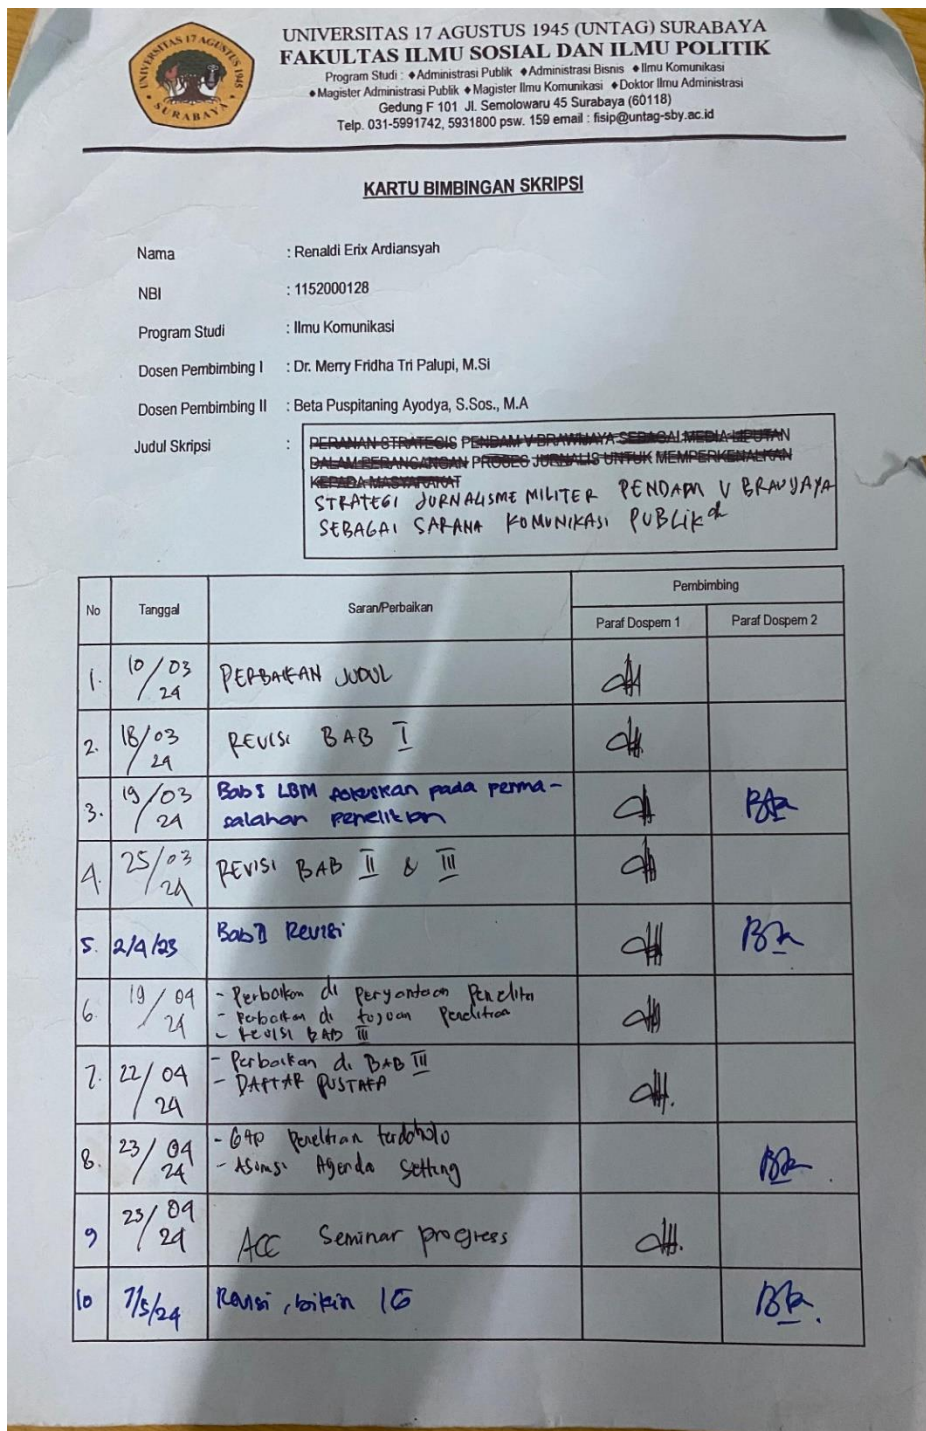 UNIVERSITAS 17 AGUSTUS 1945 (UNTAG) SURABAYA
FAKULTAS ILMU SOSIAL DAN ILMU POLITIK
Program Studi : ◆Administrasi Publik ◆Administrasi Bisnis ◆Ilmu Komunikasi
◆Magister Administrasi Publik ◆Magister Ilmu Komunikasi ◆Doktor Ilmu Administrasi
Gedung F 101 Jl. Semolowaru 45 Surabaya (60118)
Telp. 031-5991742, 5931800 psw. 159 email : fisip@untag-sby.ac.id
UNIVERSITAS 17 AGUSTUS 1945
SURABAYA
KARTU BIMBINGAN SKRIPSI
Nama : Renaldi Erix Ardiansyah
NBI : 1152000128
Program Studi : Ilmu Komunikasi
Dosen Pembimbing I : Dr. Merry Fridha Tri Palupi, M.Si
Dosen Pembimbing II : Beta Puspitaning Ayodya, S.Sos., M.A
Judul Skripsi : PERANAN STRATEGIS PENDAM V BRAWIJAYA SEBAGAI MEDIA LIPUTAN
DALAM PERANCANGAN PROSES JURNALIS UNTUK MEMPERKENALKAN
KEPADA MASYARAKAT
STRATEGI JURNALISME MILITER PENDAM V BRAWIJAYA
SEBAGAI SARANA KOMUNIKASI PUBLIK
No Tanggal Saran/Perbaikan Pembimbing
Paraf Dospem 1 Paraf Dospem 2
1. 10/03/24 PERBAIKAN JUDUL
2. 18/03/24 REVISI BAB I
3. 19/03/24 Bab I LBM fokuskan pada perma-
salahan penelitian
4. 25/03/24 REVISI BAB II & III
5. 2/4/23 Bab II Revisi
6. 19/04/24 - Perbaikan di Peryantaan Penelitia
- Perbaikan di tujuan Penelitian
- REVISI BAB III
7. 22/04/24 - Perbaikan di BAB III
- DAFTAR PUSTAKA
8. 23/04/24 - GAP Penelitian terdahulu
- Asumsi Agenda Setting
9 25/04/24 ACC Seminar progress
10 7/5/24 Revisi, bikin IG